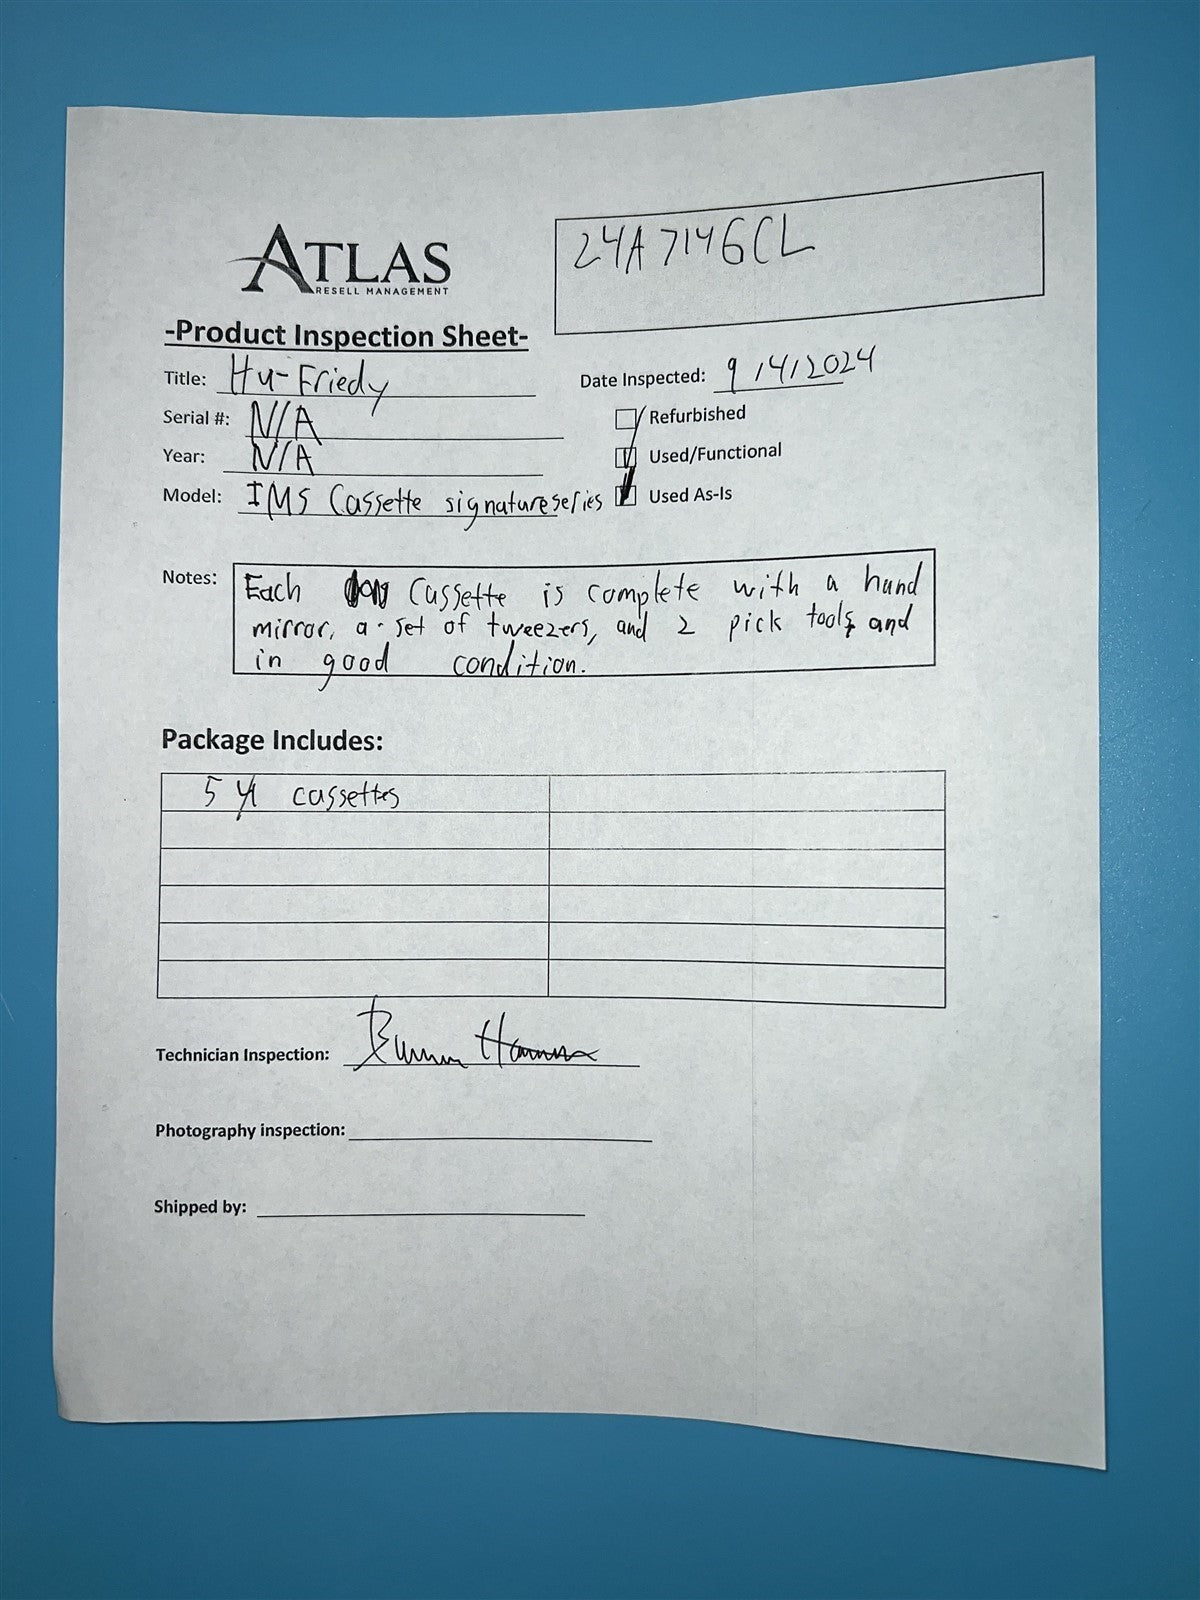 ATLAS
RESELL MANAGEMENT
24A7146CL
-Product Inspection Sheet-
Title: Hu-Friedy
Date Inspected: 9/4/2024
Serial #: N/A
Refurbished
Year: N/A
Used/Functional
Model: IMS Cassette signature series
Used As-Is
Notes: Each Cassette is complete with a hand
mirror, a set of tweezers, and 2 pick tools and
in good condition.
Package Includes:
5 cassettes
Technician Inspection:
Photography inspection:
Shipped by: